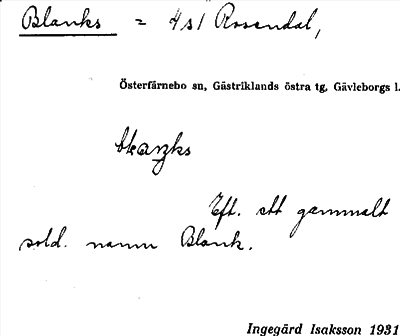 Blanks = 4s1 Rosendal,
Österfärnebo sn, Gästriklands östra tg, Gävleborgs l.
Eft. ett gammalt
sold. namn Blank.
Ingegärd Isaksson 1931